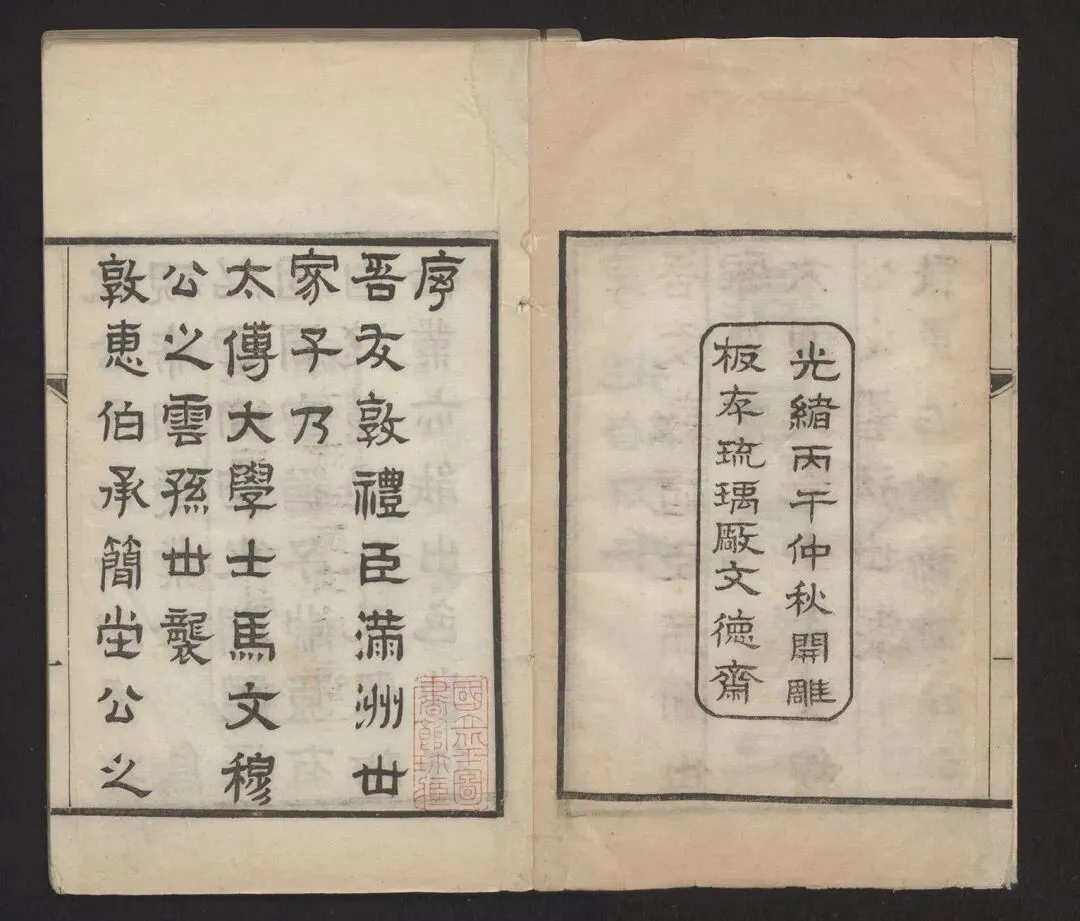 光緒丙午仲秋開雕
板存琉璃厰文德齋
序
吾友敦禮臣滿洲世
家子乃
太傅大學士馬文穆
公之雲孫世襲
敦惠伯承簡堂公之
國立圖
書館珍藏
一